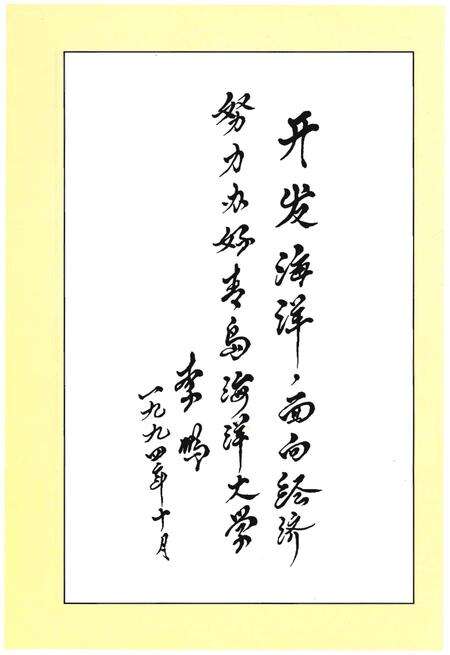 开发海洋、面向经济
努力办好青岛海洋大学
李鹏
一九九四年十月